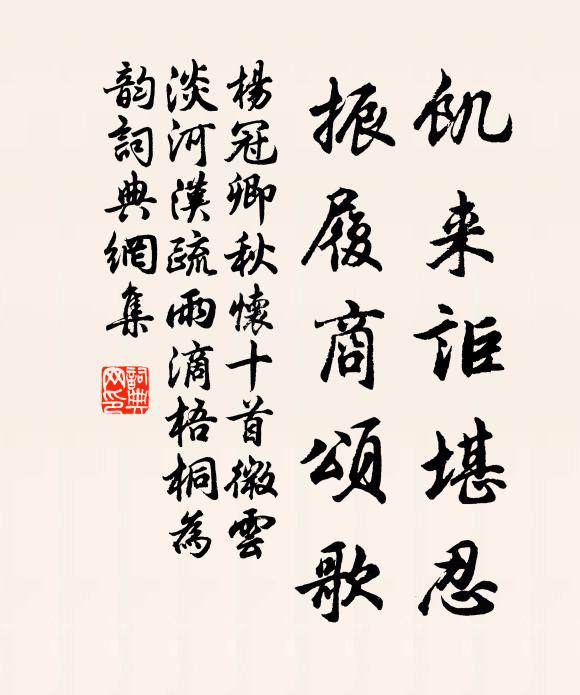 飢来詎堪忍
振履商頌歌
楊冠卿秋懷十首微雲
淡河漢疏雨滴梧桐為
韵詞典網集
詞典
网印